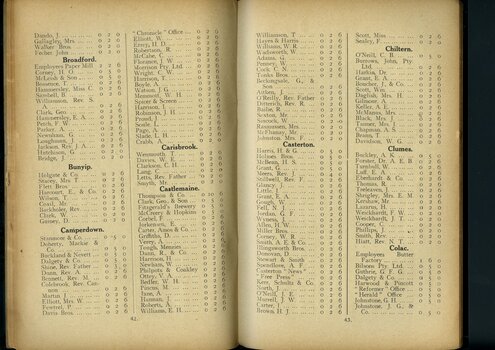 Dando, J. 0 2 6
Gallagley, Mrs. 0 2 6
Walker Bros. 0 2 6
Fecher John 0 2 6
Broadford.
Employees Paper Mill 2 2 6
Corney, H. O. 0 5 0
McLeish & Son 0 5 0
0 2 6
Hammersley, Miss C 0 2 6
Sambell, B. 0 2 6
Williamson, Rev. S.
A. 0 2 6
Clark, Geo. 0 2 6
Hammersley, E. A. 0 2 6
Petch, F. W. 0 2 6
Parker, A. 0 2 6
Newnham, G. 0 2 6
0 2 6
Jackson, Rev. J. A. 0 2 6
Hutchison, G. 0 2 6
Bridge, J. 0 2 6
Bunyip.
Holgate & Co. 0 2 6
Stacey, Mrs. T. 0 2 6
Flett Bros. 0 2 6
Harcourt, E., & Co. 0 2 6
Wilson, T. 0 2 6
Coad, Mr. 0 2 6
Rev. 0 2 6
Clark, W. 0 2 6
Gurney, D. 0 2 6
Camperdown.
Stanmore & Co. 0 5 0
Doherty, Mackie &
Co. 0 5 0
Buckland & Nevett 0 5 0
Dalgety & Co. 0 5 0
Shine, Rev. Father 0 2 6
Dunn, Rev. A. 0 2 6
Bennett, Rev. M. 0 2 6
Colebrook, Rev. Can-
non 0 2 6
Martin J. 0 2 6
Elliott, Mrs. W. 0 2 6
Pewtrel, P. 0 2 6
Davis Bros. 0 2 6
"Chronicle" Office 0 2 6
Elliott, W. 0 2 6
Errey, H. D. 0 2 6
Robertson, R. 0 2 6
McCabe, C. 0 2 6
Florance, J. W. 0 2 6
Morrison Pty. Ltd 0 2 6
Wright, C. W. 0 2 6
Harrison, T. 0 2 6
Boyle, A. 0 2 6
Watson, J. G. 0 2 6
Whitehead, W. H. 0 2 6
Spicer & Screen 0 2 6
Harrison, J. 0 2 6
Robinson, J. H. 0 2 6
Pound, J. 0 2 6
Day, J. 0 2 6
Page, A. 0 2 6
Slade, T. H. 0 2 6
Crabb, A. 0 2 6
Carisbrook.
Weymouth, T. 0 2 6
Davies, W. E. 0 2 6
Clarkson, C. H. 0 2 6
Lang, 0 2 6
Letts, Rev. Father 0 2 6
Smyth, W. 0 2 6
Castlemaine.
Thompson & Co. 0 10 0
Clark, Geo. & Son 0 5 0
Fitzgerald's Brewery 0 2 6
McCreery & Hopkins 0 2 6
Corbel, F. 0 2 6
Jorkensen, E. 0 2 6
Carter, Amos & Co 0 2 6
Griffiths, D. 0 2 6
Verey, 0 2 6
Tough, Memnies 0 2 6
Dunn, R., & Co. 0 2 6
Harrison, H. 0 2 6
Newham, W. 0 2 6
Philpots & Coakley 0 2 6
Ottey, V. A. 0 2 6
Bedler, W. H. 0 2 6
Pascoe, M. 0 2 6
Tane, C. 0 2 6
Hunman, J. 0 2 6
Roberts, A. 0 2 6
Williams, E. H. 0 2 6
42.
Williamson, T. 0 2 6
Hayes & Harris 0 2 6
Williams, W. R. 0 2 6
Wadsworth, W. 0 2 6
Adams, G. 0 2 6
Penney, W. 0 2 6
Cock, C. X. 0 2 6
Tonks Bros. 0 2 6
Beckingsale, G., &
Son 0 2 6
Aitken, 0 2 6
O'Reilly, Rev. Father 0 2 6
Ditterich, Rev. R. 0 2 6
Bailie, R. 0 2 6
Sexton, Mr. 0 2 6
Nescock, W. 0 2 6
Rasmussen, Mrs. 0 2 6
McPhaney, Mr. 0 2 6
Johnston, Mrs. F. 0 2 6
Casterton.
Harris, H. & G. 0 5 0
Holmes Bros. 0 5 0
McBean, H. S. 0 5 0
Grant, 0 5 0
Meers, Rev. J. 0 4 0
Stillwell, Rev. F. 0 2 6
Glancy, J. 0 2 6
Little, J. 0 2 6
Tennant, E. A. 0 2 6
Gough, W. 0 2 6
Fell, N. 0 2 6
Jordan, G. F. 0 2 6
Vyness, J. 0 2 6
Allen, H. W. 0 2 6
Miller Bros. 0 2 6
Gurney, W. R. 0 2 6
Smith, A. E. & Co. 0 2 6
Illingsworth Bros. 0 2 6
Donovan, D. 0 2 6
Stewart & Smith 0 2 6
Swindlows, A. F. 0 2 6
Casterton "News" 0 2 6
"Free Press" 0 2 6
Kerr, Schultz & Co. 0 2 6
Smith, J. 0 2 6
O'Neill, J. 0 2 6
Murrell, J. W. 0 2 6
Carter, T. 0 2 6
Brown, H. J. 0 2 6
Scott, Miss 0 2 6
Sealey, F. 0 2 6
Chiltern.
O'Neill, C. B. 0 5 0
Burrows, John Pty.
Ltd. 0 2 6
Harkin, Dr. 0 2 6
Grant, E. A. 0 2 6
Boucher, J., & Co. 0 2 6
Scott, Wm. 0 2 6
English, Mrs. H. 0 2 6
Gilmour, A. 0 2 6
Keller, A. E. 0 2 6
McManus, Mrs. 0 2 6
Black, Mrs. J. 0 2 6
Tanner, Mrs. J. 0 2 6
Chapman, A. S. 0 2 6
Beans, T. 0 2 6
Davidson, W. G. 0 2 6
Clumes.
Buckley, A. K. 0 5 0
Forster, Dr. A. E. B 0 2 6
Turnbull, W. 0 2 6
Luff, E. A. 0 2 6
Eberhardt & Co. 0 2 6
Thomas, R. 0 2 6
Treleaven, J. 0 2 6
Skrigley, Mrs. E. M. 0 2 6
Kershaw, Mr. 0 2 6
Lazarus, H. 0 2 6
Weickhardt, F. W. 0 2 6
Weickhardt, J. T. 0 2 6
Cooper, C. 0 2 6
Phillips, J. 0 2 6
Smith, Rev. 0 2 6
Hiatt, Rev. N. T. 0 2 6
Colac.
Employees Butter
Factory 1 6 0
Bilsons Pty. Ltd. 0 5 0
Guthrie, G. F. G. 0 5 0
Dalgety & Co. 0 5 0
Harwood & Pincott 0 5 0
"Reformer" Office 0 5 0
"Herald" Office 0 5 0
Johnstone, G. H. 0 5 0
Johnstone, J. G., &
Co. 0 5 0
43.